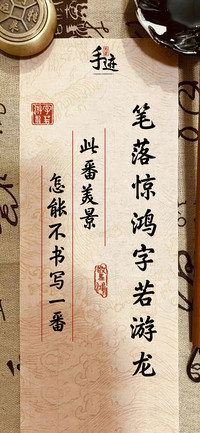 手迹
笔落惊鸿字若游龙
此番美景
怎能不书写一番